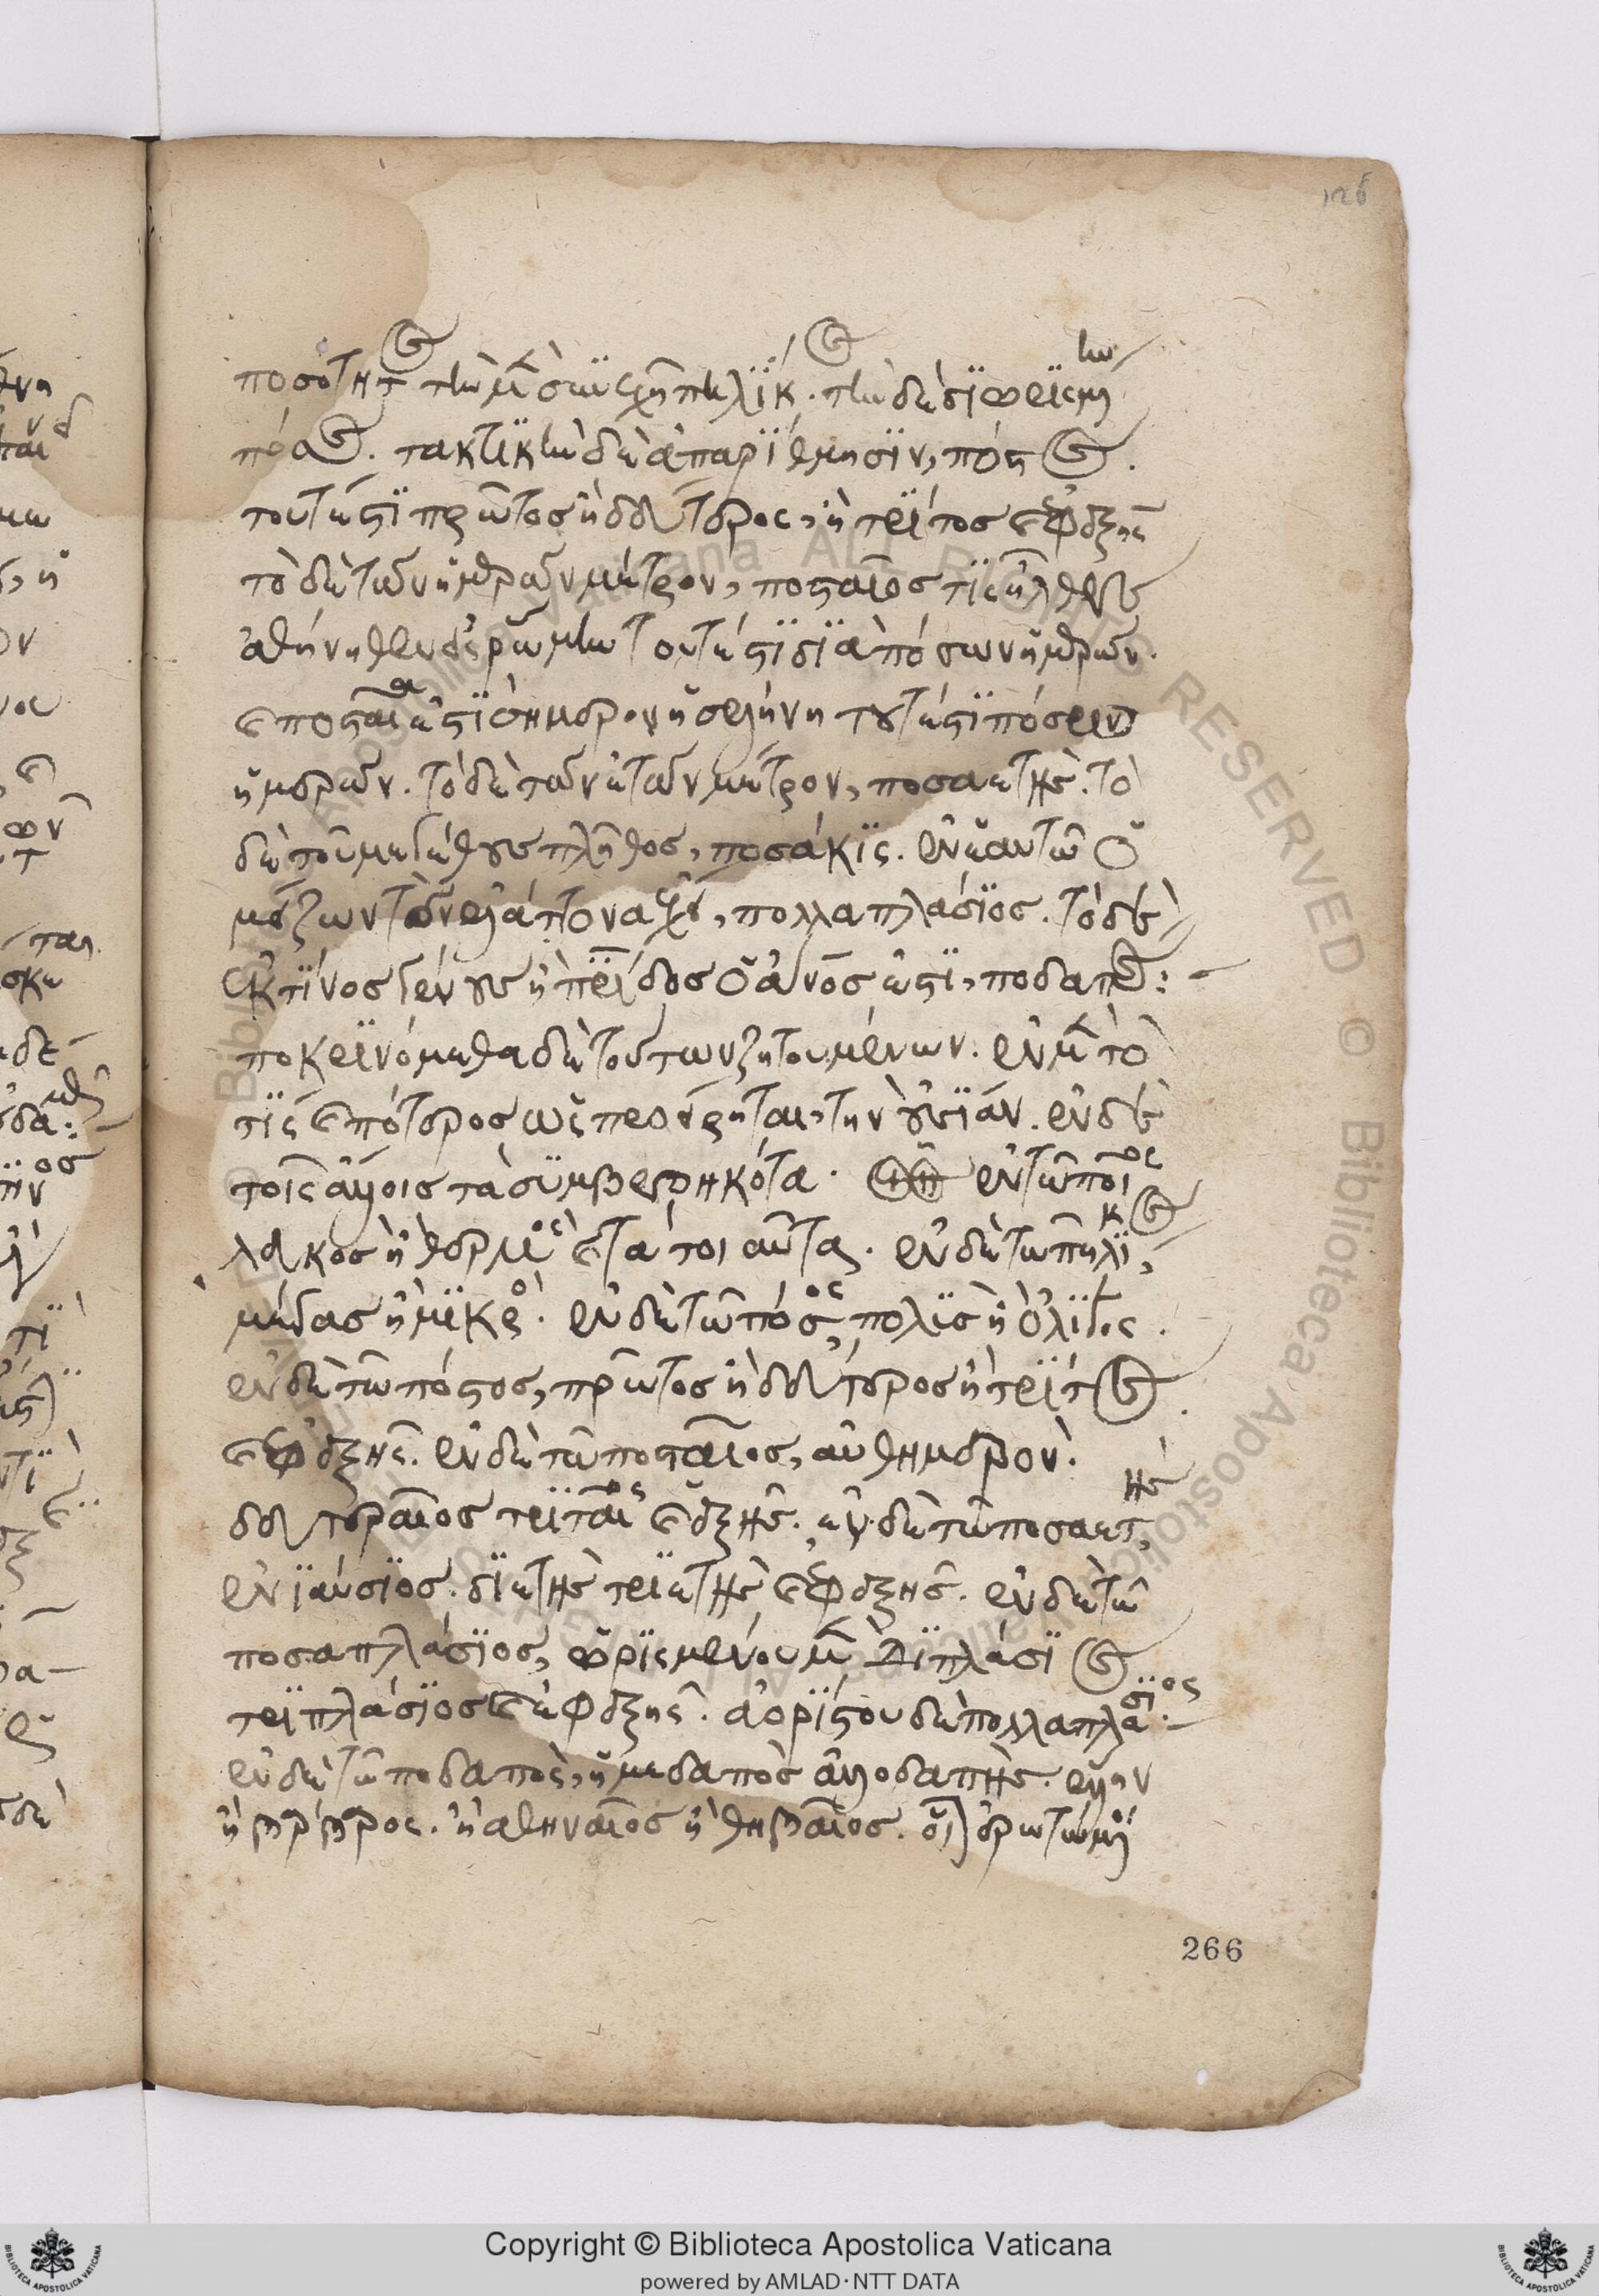 ποσότητος τὴν μὲν συνεχῆ πηλίκος. τὴν δὲ διωρισμένην
πόσος. τακτικὴν δὲ ἀπαρίθμησιν, πόστος.
τουτέστι πρῶτος ἢ δεύτερος, ἢ τρίτος καὶ ἐφεξῆς
τὸ δὲ τῶν ἡμερῶν μέτρον, ποσταῖος τὶς ἦλθεν
ἀθήνηθεν εἰς ῥώμην τουτέστι διὰ πόσων ἡμερῶν.
καὶ ποσταία ἐστὶ σήμερον ἡ σελήνη τουτέστι πόσων
ἡμερῶν. τὸ δὲ τῶν ἐτῶν μέτρον, ποσαετής. τὸ
δὲ τοῦ μεγέθους πλῆθος, ποσάκις. ἐν ἑαυτῶ ὁ
μείζων τὸν ἐλάττονα ἔχει, πολλαπλάσιος. τὸ δὲ
ἐκ τίνος γένους ἢ πατρίδος ὁ ἄνος ἐστὶ, ποδαπός:
ποκρινόμεθα δὲ τούτων ζητουμένων. ἐν μὲν τὸ
τίς καὶ πότερος ὡς προείρηται, τὴν οὐσίαν. ἐν δὲ
τοῖς ἄλλοις τὰ συμβεβηκότα. ἐν τῶ ποῖος
λευκὸς ἢ θερμὸς καὶ τὰ τοιαῦτα. ἐν δὲ τῶ πηλίκος,
μέγας ἢ μικρός. ἐν δὲ τῶ πόσος, πολὺς ἢ ὀλίγος.
ἐν δὲ τῶ πόστος, πρῶτος ἢ δεύτερος ἢ τρίτος
καὶ ἐφεξῆς. ἐν δὲ τῶ ποσταῖος, αὐθημερόν.
δευτεραῖος τριταῖος καὶ ἑξῆς. ἐν δὲ τῶ ποσαετής,
ἐνιαύσιος. διετὴς τριετὴς καὶ ἐφεξῆς. ἐν δὲ τῶ
ποσαπλάσιος, ὡρισμένου μὲν διπλάσιος
τριπλάσιος καὶ ἐφεξῆς. ἀορίστου δὲ πολλαπλάσιος.
ἐν δὲ τῶ ποδαπὸς, ἡμεδαπὸς ἀλλοδαπής. ἕλλην
ἢ βάρβαρος. ἢ ἀθηναῖος ἢ θηβαῖος. ὅτι ἐρωτώμενοι
266
Copyright © Biblioteca Apostolica Vaticana
powered by AMLAD·NTT DATA